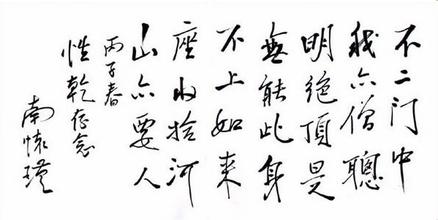 不二门中
我亦僧聰
明絕頂是
無能此身
不上如來
座收拾河
山亦要人
丙子春
性乾存念
南懷瑾